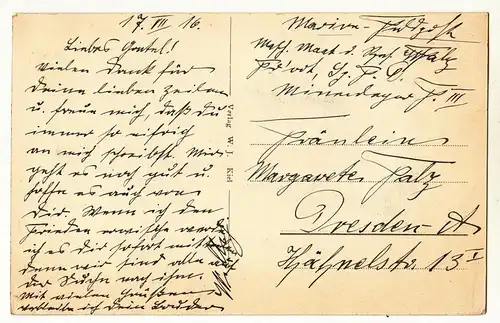 17. VII. 16.
Liebes Gretel!
Vielen Dank für
Deine lieben Zeilen
u. freue mich, daß du
immer so eifrig
an mich schreibst. Mir
geht es noch gut u.
hoffe es auch von
Dir. Wenn ich den
Frieden erwische werd
ich es dir sofort mitt.
denn wir sind alle auf
der Suche nach ihm.
Mit vielen Grüßen
verbleibe ich Dein Bruder
Verlag W. J. Kiel
Marine-Feldpost
Masch. Maat d. Res. Palz
Minendepot P. III
Fräulein
Margarete Palz
Dresden-A
Hähnelstr. 13 I